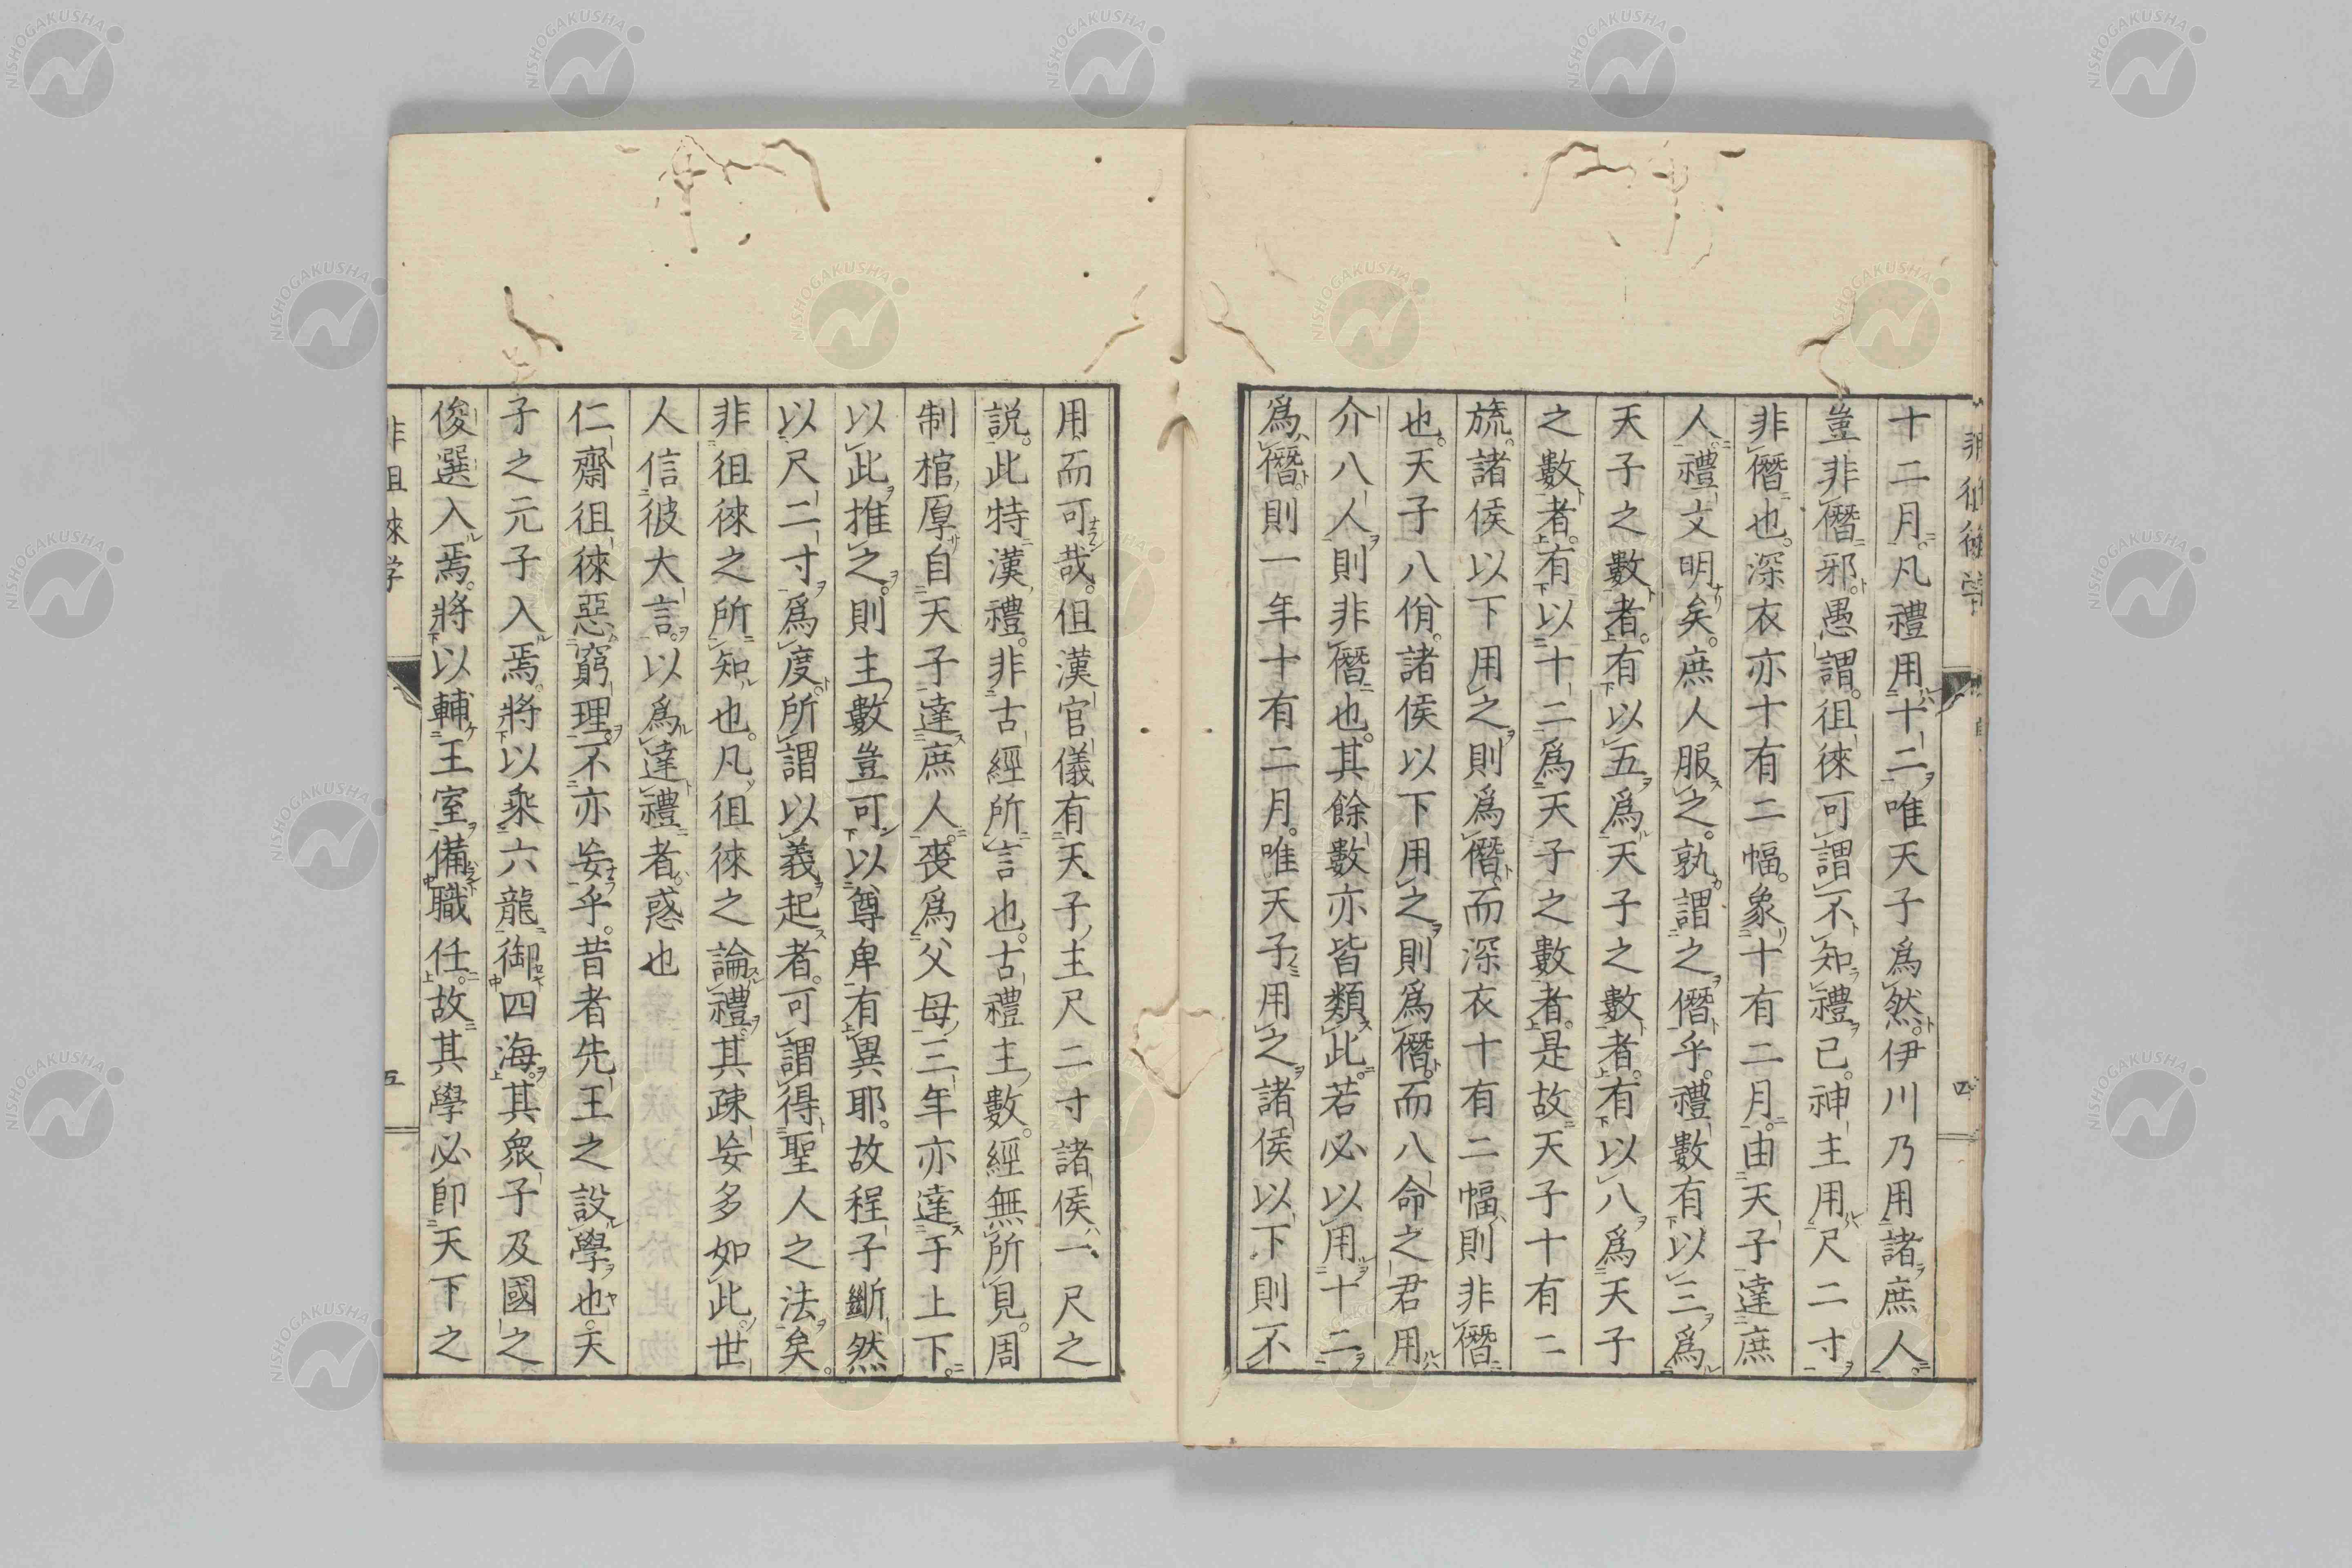 十二月。凡禮用十二唯天子爲然。伊川乃用諸庶人。
豈非僭邪。愚謂。徂徠可謂不知禮已。神主用尺二寸
非僭也。深衣亦十有二幅。象十有二月。由天子達庶
人。禮文明矣。庶人服之。孰謂之僭乎。禮數有以三爲
天子之數者。有以五爲天子之數者。有以八爲天子
之數者。有以十二爲天子之數者。是故天子十有二
旒。諸侯以下用之則爲僭。而深衣十有二幅則非僭
也。天子八佾。諸侯以下用之則爲僭。而八命之君用
介八人則非僭也。其餘數亦皆類此。若必以用十二
爲僭。則一年十有二月。唯天子用之諸侯以下則不
用而可哉。但漢官儀有天子主尺二寸諸侯一尺之
説。此特漢禮。非古經所言也。古禮主數。經無所見。周
制棺厚自天子達庶人。喪爲父母三年亦達于上下。
以此推之。則主數豈可以尊卑有異耶。故程子斷然
以尺二寸爲度。所謂以義起者。可謂得聖人之法矣。
非徂徠之所知也。凡徂徠之論禮。其疎妄多如此。世
人信彼大言。以爲達禮者惑也
仁齋徂徠惡窮理。不亦妄乎。昔者先王之設學也。天
子之元子入焉。將以乘六龍御四海。其衆子及國之
俊選入焉。將以輔王室備職任。故其學必卽天下之
非徂徠学
四
非徂徠学
五
NISHOGAKUSHA